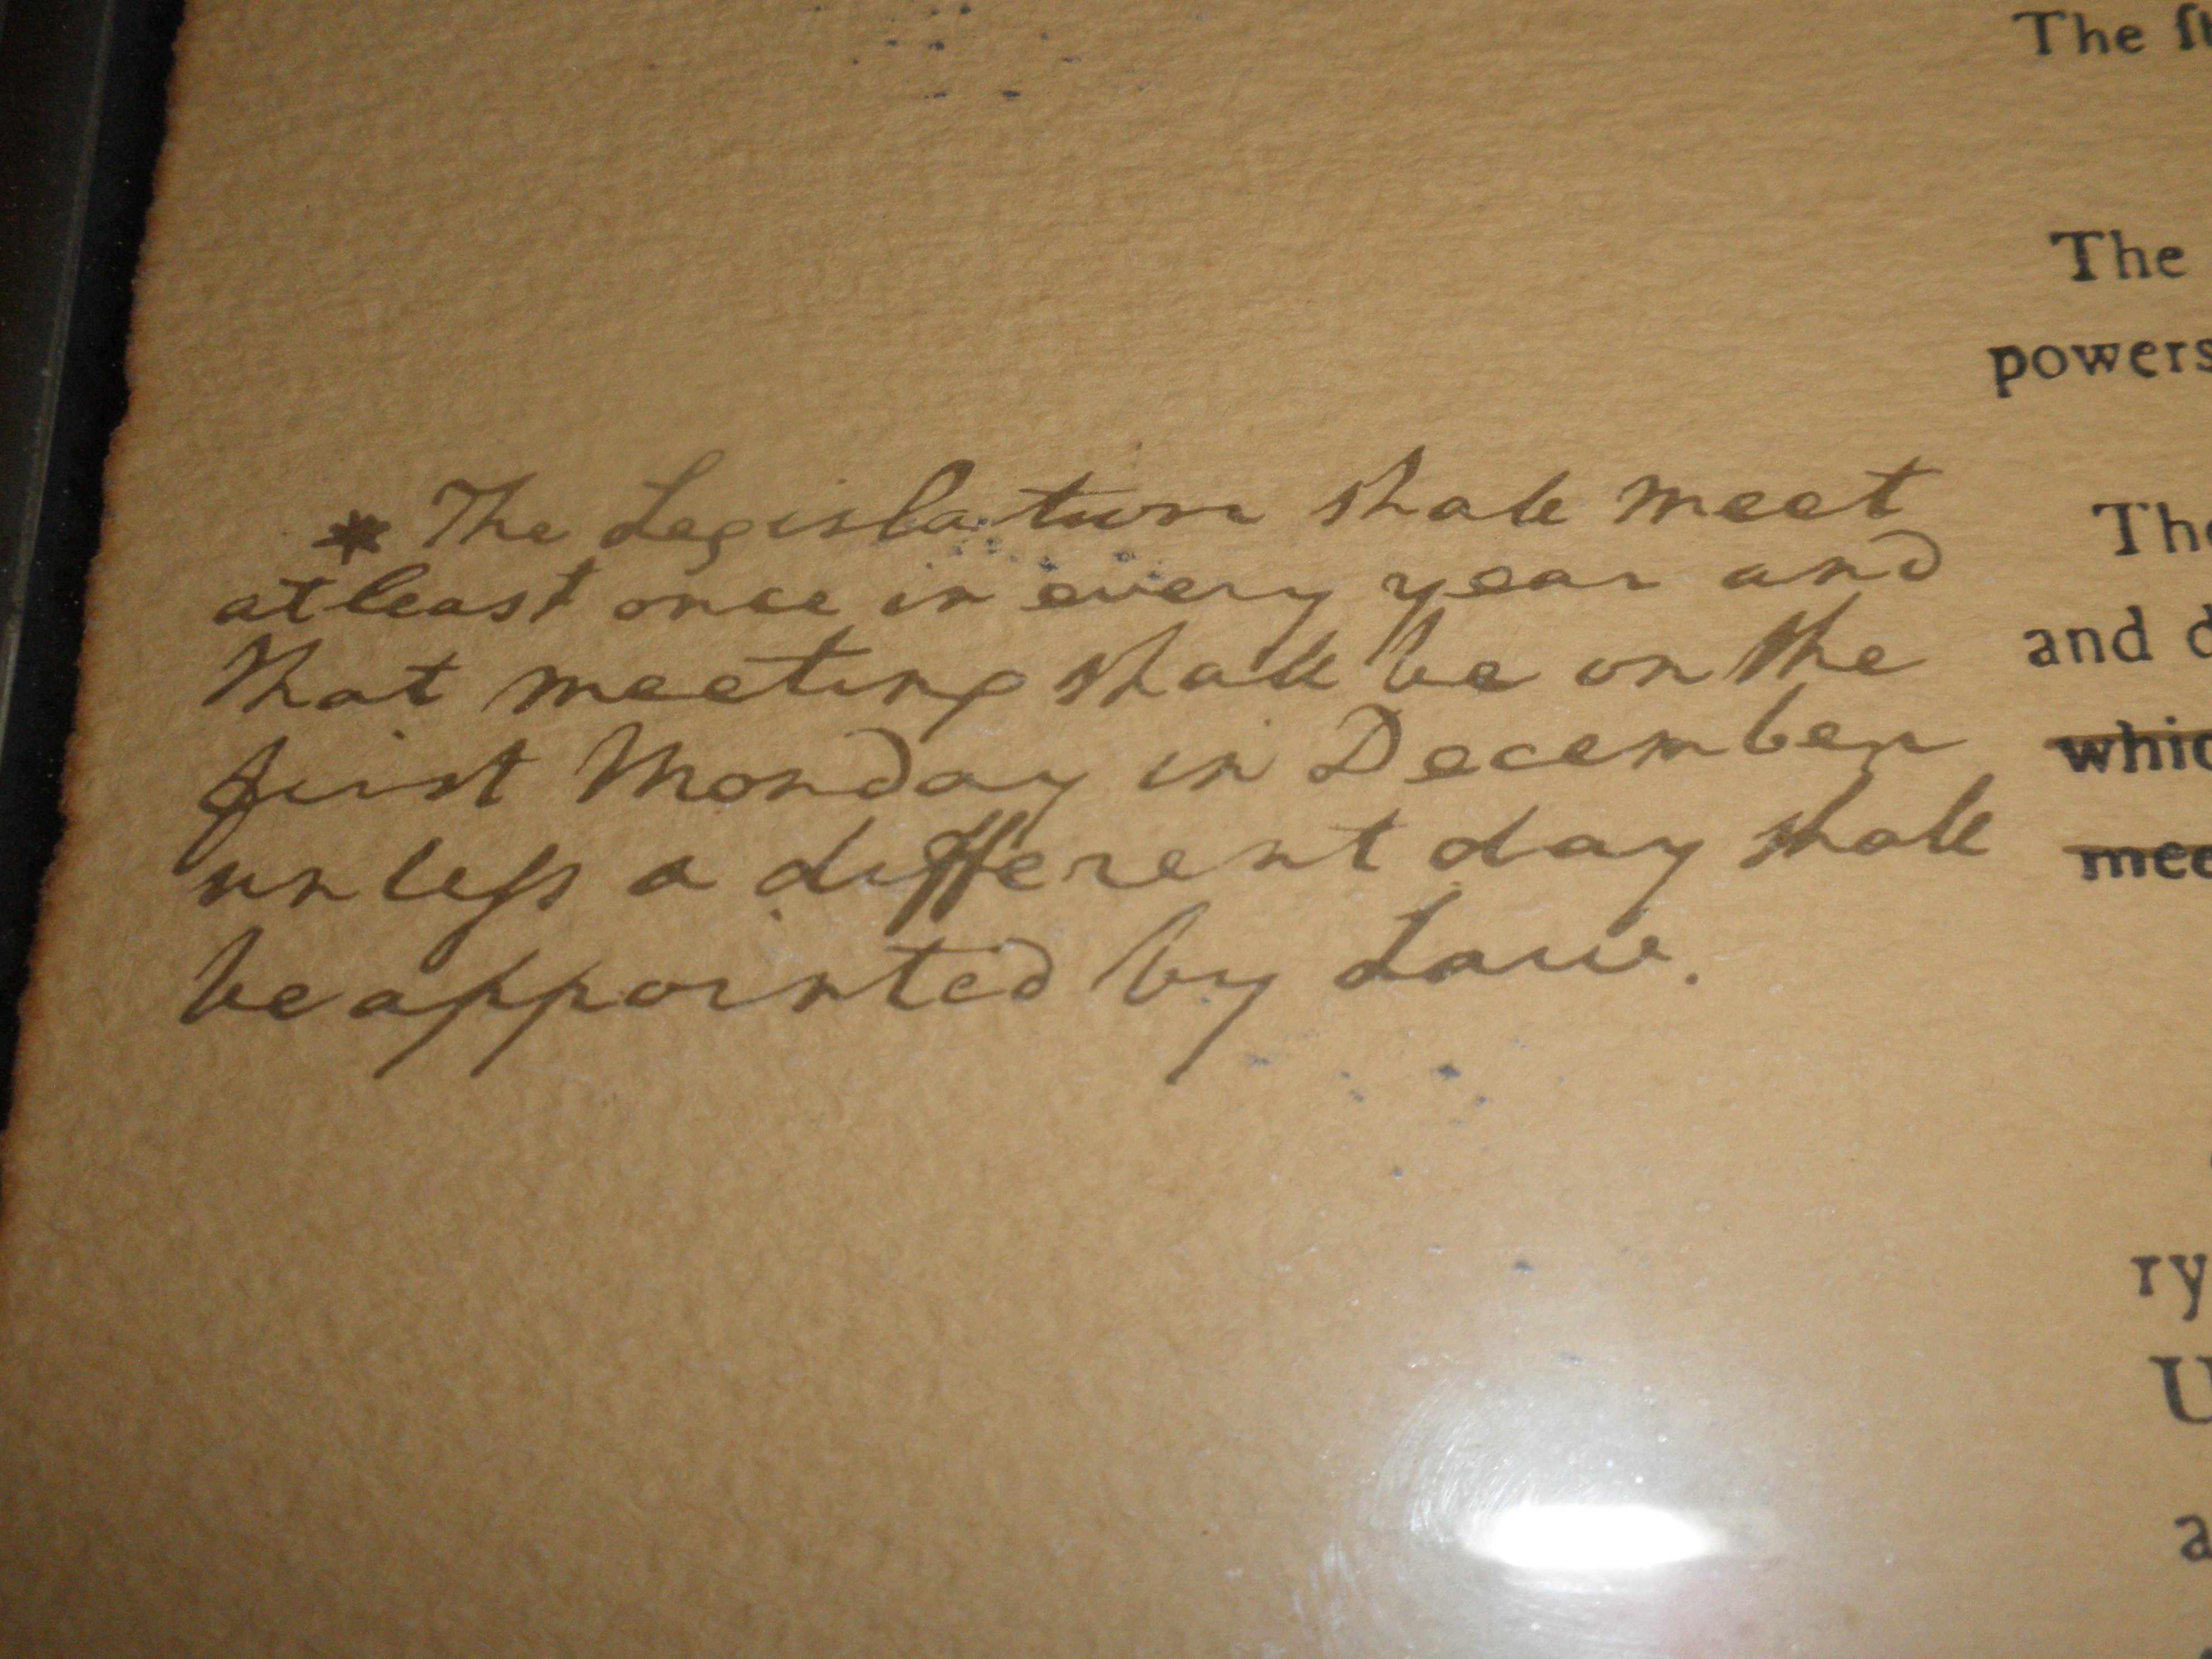 * The Legislature shall meet
at least once in every year and
that meeting shall be on the
first Monday in December
unleſs a different day shall
be appointed by Law.
The
The
powers
and
ry